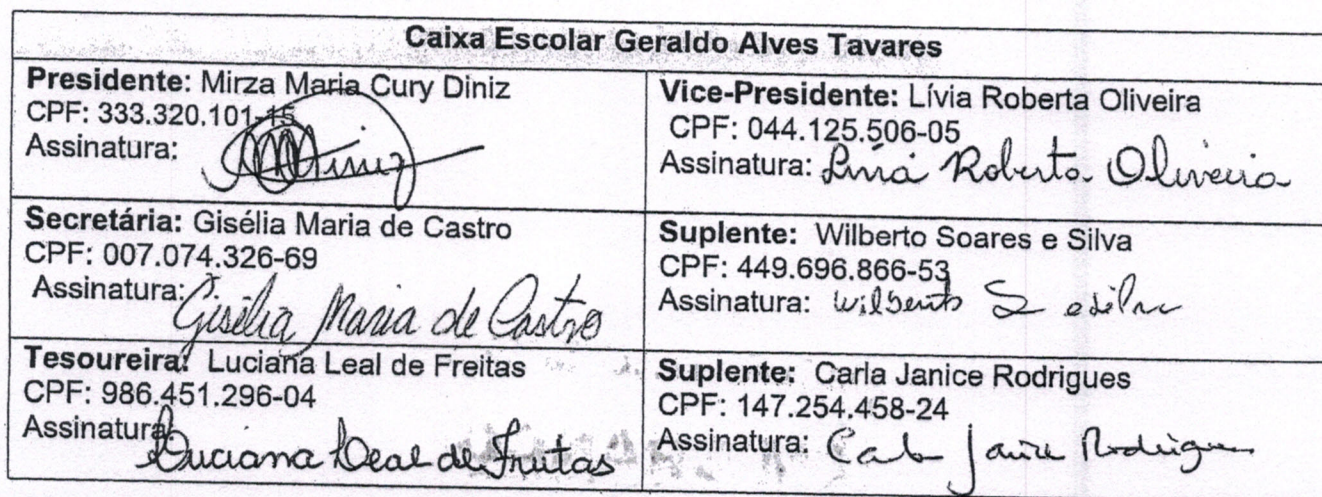 Caixa Escolar Geraldo Alves Tavares
Presidente: Mirza Maria Cury Diniz
CPF: 333.320.101-15
Assinatura: MDiniz
Vice-Presidente: Lívia Roberta Oliveira
CPF: 044.125.506-05
Assinatura: Lívia Roberta Oliveira
Secretária: Gisélia Maria de Castro
CPF: 007.074.326-69
Assinatura: Gisélia Maria de Castro
Suplente: Wilberto Soares e Silva
CPF: 449.696.866-53
Assinatura: Wilberto S e Silva
Tesoureira: Luciana Leal de Freitas
CPF: 986.451.296-04
Assinatura: Luciana Leal de Freitas
Suplente: Carla Janice Rodrigues
CPF: 147.254.458-24
Assinatura: Carla Janice Rodrigues